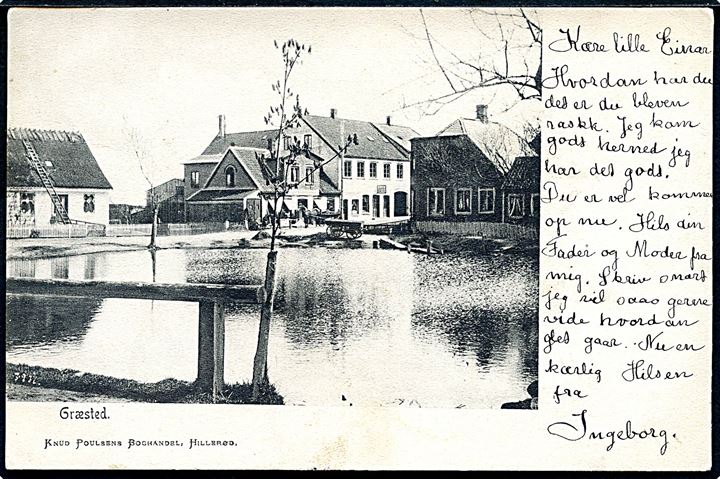 Kære lille Einar
Hvordan har du
det er du bleven
raskk. Jeg kom
gods herned jeg
har det gods.
Du er vel kommen
op nu. Hils din
Fader og Moder fra
mig. Skriv snart
jeg vil saas gerne
vide hvordan
det gaar. Nu en
kærlig Hilsen
fra
Ingeborg.
Græsted.
KNUD POULSENS BOGHANDEL, HILLERØD.